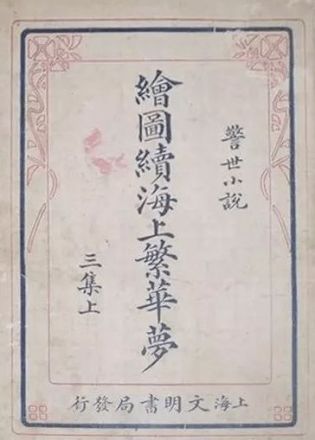 警世小說
繪圖續海上繁華夢
三集上
上海文明書局發行